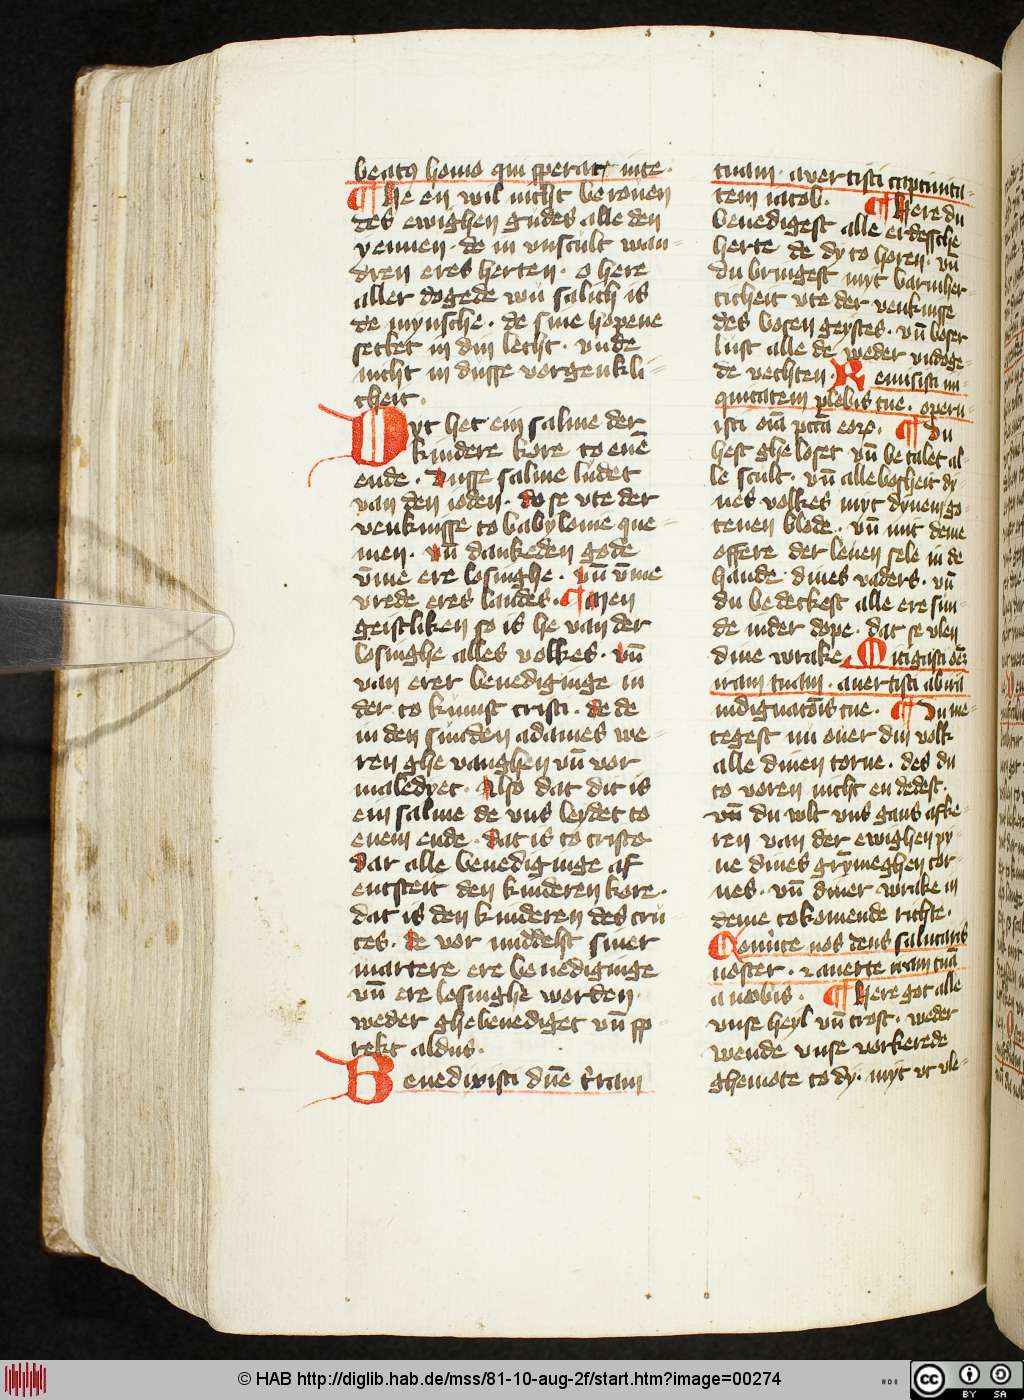 beatus homo qui sperat in te .
¶ He en wil nicht berouen
des ewighen gudes alle den
yennen · de in unscult wan-
dren eres herten · o here
aller dogede wu salich is
de mynsche · de sine hopene
settet in din lecht · unde
nicht in dusse vorgenkli-
cheit .
Dyt het ein salme der
kindere kore to enē
ende . Dusse salme ludet
van den ioden · do se ute der
venknisse to babylonie que-
men · vn̄ dankeden gode
v̄me ere losinghe . vn̄ v̄me
vrede eres landes · ¶ Men
geistliken so is he van der
losinghe alles volkes · vn̄
van erer benediginge in
der to kumst cristi · de de
in den sunden adames we-
ren ghe vanghen vn̄ vor
maledyet · Also dat dit is
ein salme de uns leydet to
enem ende · dat is to cristo
Dar alle benediginge af
entsteit den kinderen kore ·
dat is den kinderen des crü-
ces · de vor middelst siner
martere ere benediginge
vn̄ ere losinghe worden
weder ghebenediget vn̄ sp-
rekt aldus .
Benedixisti dn̄e t̄ram
tuam · avertisti captiuita-
tem iacob . ¶ Here du
benedigest alle erdessche
herte de dy to horen · vn̄
du bringest myt barmher-
ticheit ute der venknisse
des bosen geystes · vn̄ loser
lust alle de weder undoge-
de vechten · Remisisti in-
quitatem plebis tue · operu-
isti om̄a pctā eorꝝ . ¶ Du
hest ghe loset vn̄ betalet al-
le scult · vn̄ alle bosheit dy
nes volkes myt dynem go-
tenen blode · vn̄ mit deme
offere der leuen sele in de
hande dines vaders · vn̄
du bedeckest alle ere sun-
de in der dope · dat se vlen
dine wrake Mitigasti oēm
iram tuam · avertisti ab ira
indignatōis tue . ¶ Du me-
tegest nu ouer din volk
alle dinen torne · des du
to voren nicht en dedest ·
vn̄ du wlt uns gans afke-
ren van der ewighen py-
ne dines grymeghen tor
nes · vn̄ diner wrake in
deme tokomende richte ·
Conūte nos deus salutaris
noster · ⁊ averte iram tuā
a nobis · ¶ Here got alle
unse heyl vn̄ trost · weder
wende unse vorkerede
ghemote to dy · myt ut vle-
© HAB http://diglib.hab.de/mss/81-10-aug-2f/start.htm?image=00274
cc BY SA